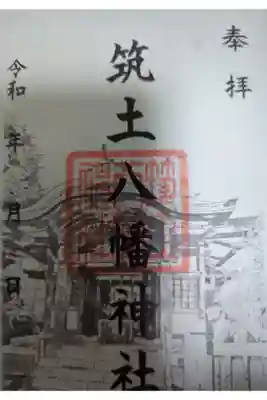 奉拝
筑土八幡神社
令和 年 月 日